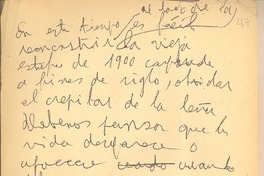 al paso de los
47
En este tiempo es fácil
reconstruir la vieja
estepa de 1900
a fines de siglo, olvidar
el crepitar de la leña
Debemos pensar que la
vida desaparece o
aparece cuando cuando